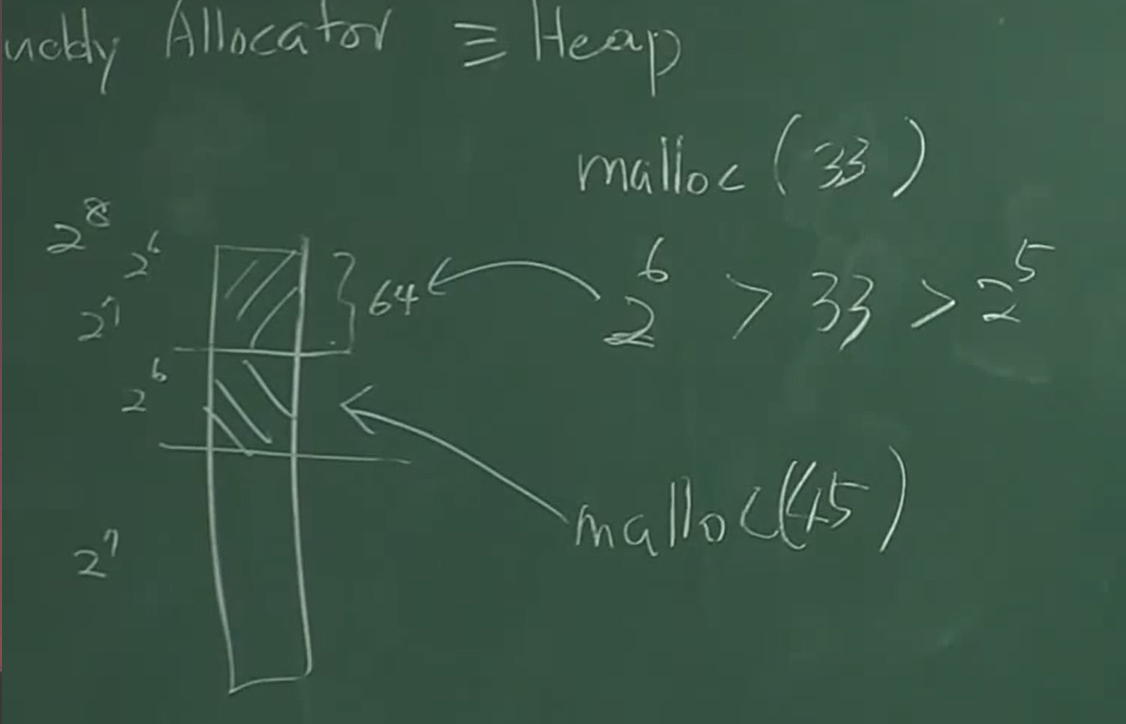 uddy Allocator ≡ Heap
malloc (33)
2^8
2^6
2^7
64
2^6 > 33 > 2^5
2^6
malloc(45)
2^7